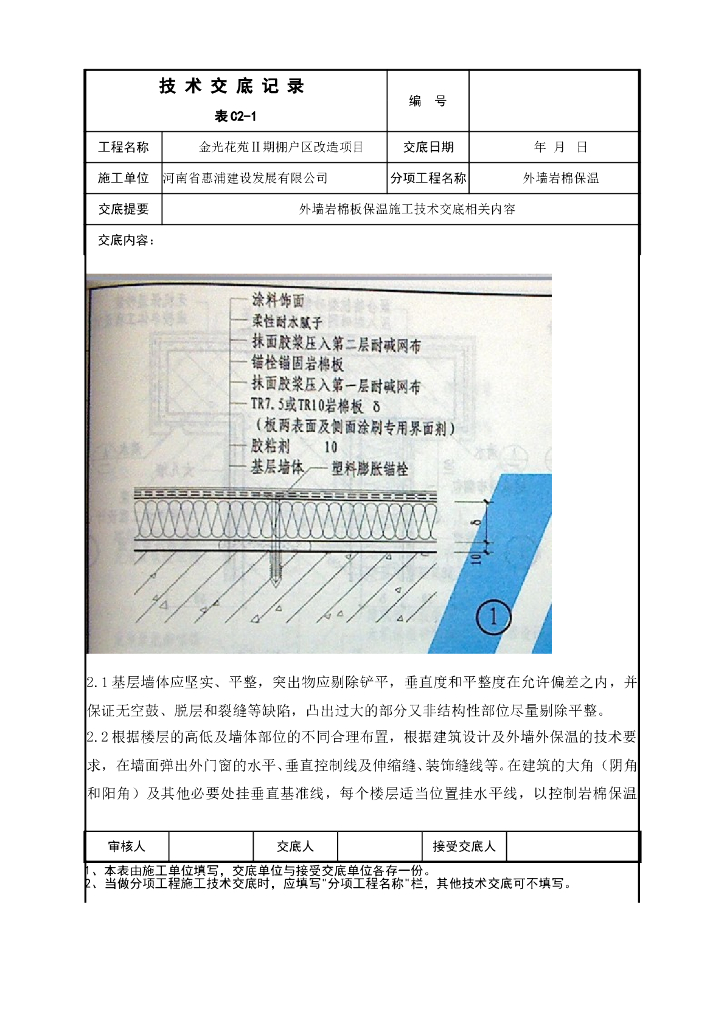 技 术 交 底 记 录
表 C2-1
编 号
工程名称 金光花苑Ⅱ期棚户区改造项目 交底日期 年 月 日
施工单位 河南省惠浦建设发展有限公司 分项工程名称 外墙岩棉保温
交底提要 外墙岩棉板保温施工技术交底相关内容
交底内容：
涂料饰面
柔性耐水腻子
抹面胶浆压入第二层耐碱网布
锚栓锚固岩棉板
抹面胶浆压入第一层耐碱网布
TR7.5或TR10岩棉板 δ
（板两表面及侧面涂刷专用界面剂）
胶粘剂 10
基层墙体 塑料膨胀锚栓
δ
10
1
2.1基层墙体应坚实、平整，突出物应剔除铲平，垂直度和平整度在允许偏差之内，并
保证无空鼓、脱层和裂缝等缺陷，凸出过大的部分又非结构性部位尽量剔除平整。
2.2根据楼层的高低及墙体部位的不同合理布置，根据建筑设计及外墙外保温的技术要
求，在墙面弹出外门窗的水平、垂直控制线及伸缩缝、装饰缝线等。在建筑的大角（阴角
和阳角）及其他必要处挂垂直基准线，每个楼层适当位置挂水平线，以控制岩棉保温
审核人 交底人 接受交底人
1、本表由施工单位填写，交底单位与接受交底单位各存一份。
2、当做分项工程施工技术交底时，应填写"分项工程名称"栏，其他技术交底可不填写。